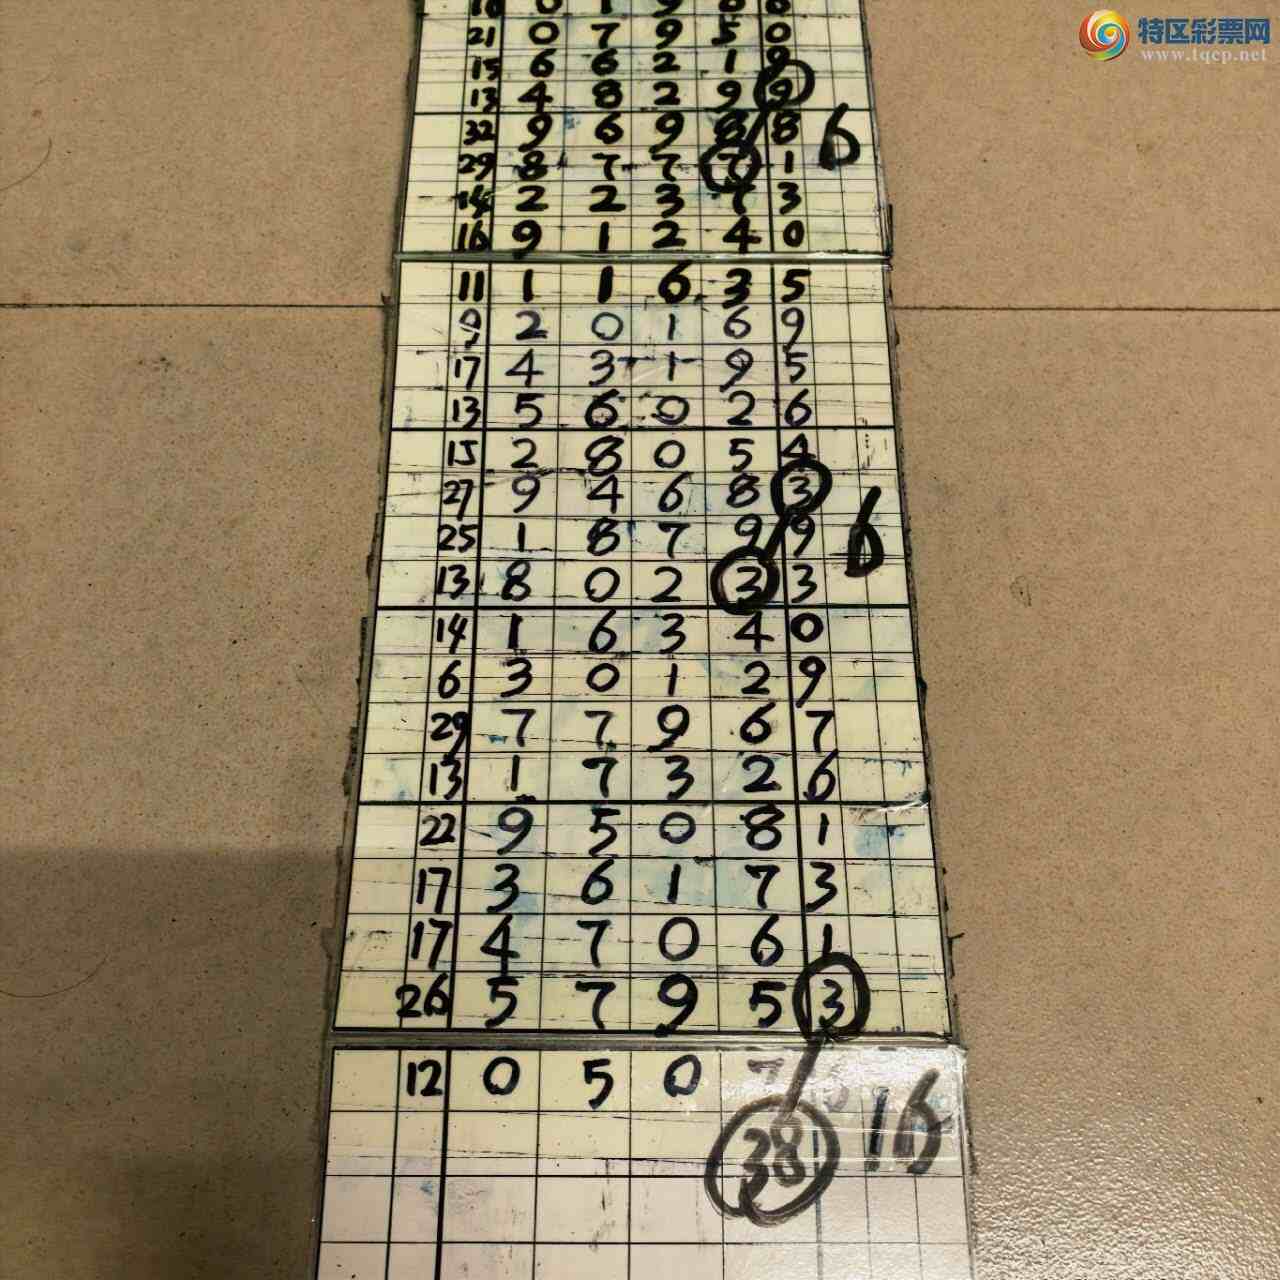 特区彩票网
www.tqcp.net
21 0 7 9 5 0
15 6 6 2 1 9
13 4 8 2 9 9
32 9 6 9 8 8 6
29 8 7 7 7 1
14 2 2 3 7 3
16 9 1 2 4 0
11 1 1 6 3 5
9 2 0 1 6 9
17 4 3 1 9 5
13 5 6 0 2 6
15 2 8 0 5 4
27 9 4 6 8 3
25 1 8 7 9 9 6
13 8 0 2 3 3
14 1 6 3 4 0
6 3 0 1 2 9
29 7 7 9 6 7
13 1 7 3 2 6
22 9 5 0 8 1
17 3 6 1 7 3
17 4 7 0 6 1
26 5 7 9 5 3
12 0 5 0 7
38 16